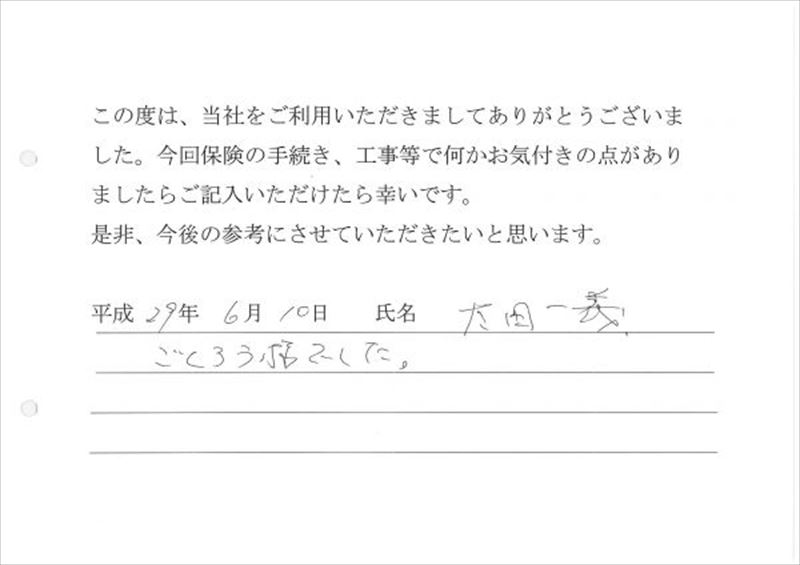 この度は、当社をご利用いただきましてありがとうございま
した。今回保険の手続き、工事等で何かお気付きの点があり
ましたらご記入いただけたら幸いです。
是非、今後の参考にさせていただきたいと思います。
平成 29年 6月 10日 氏名 太田一義
ごくろう様でした。